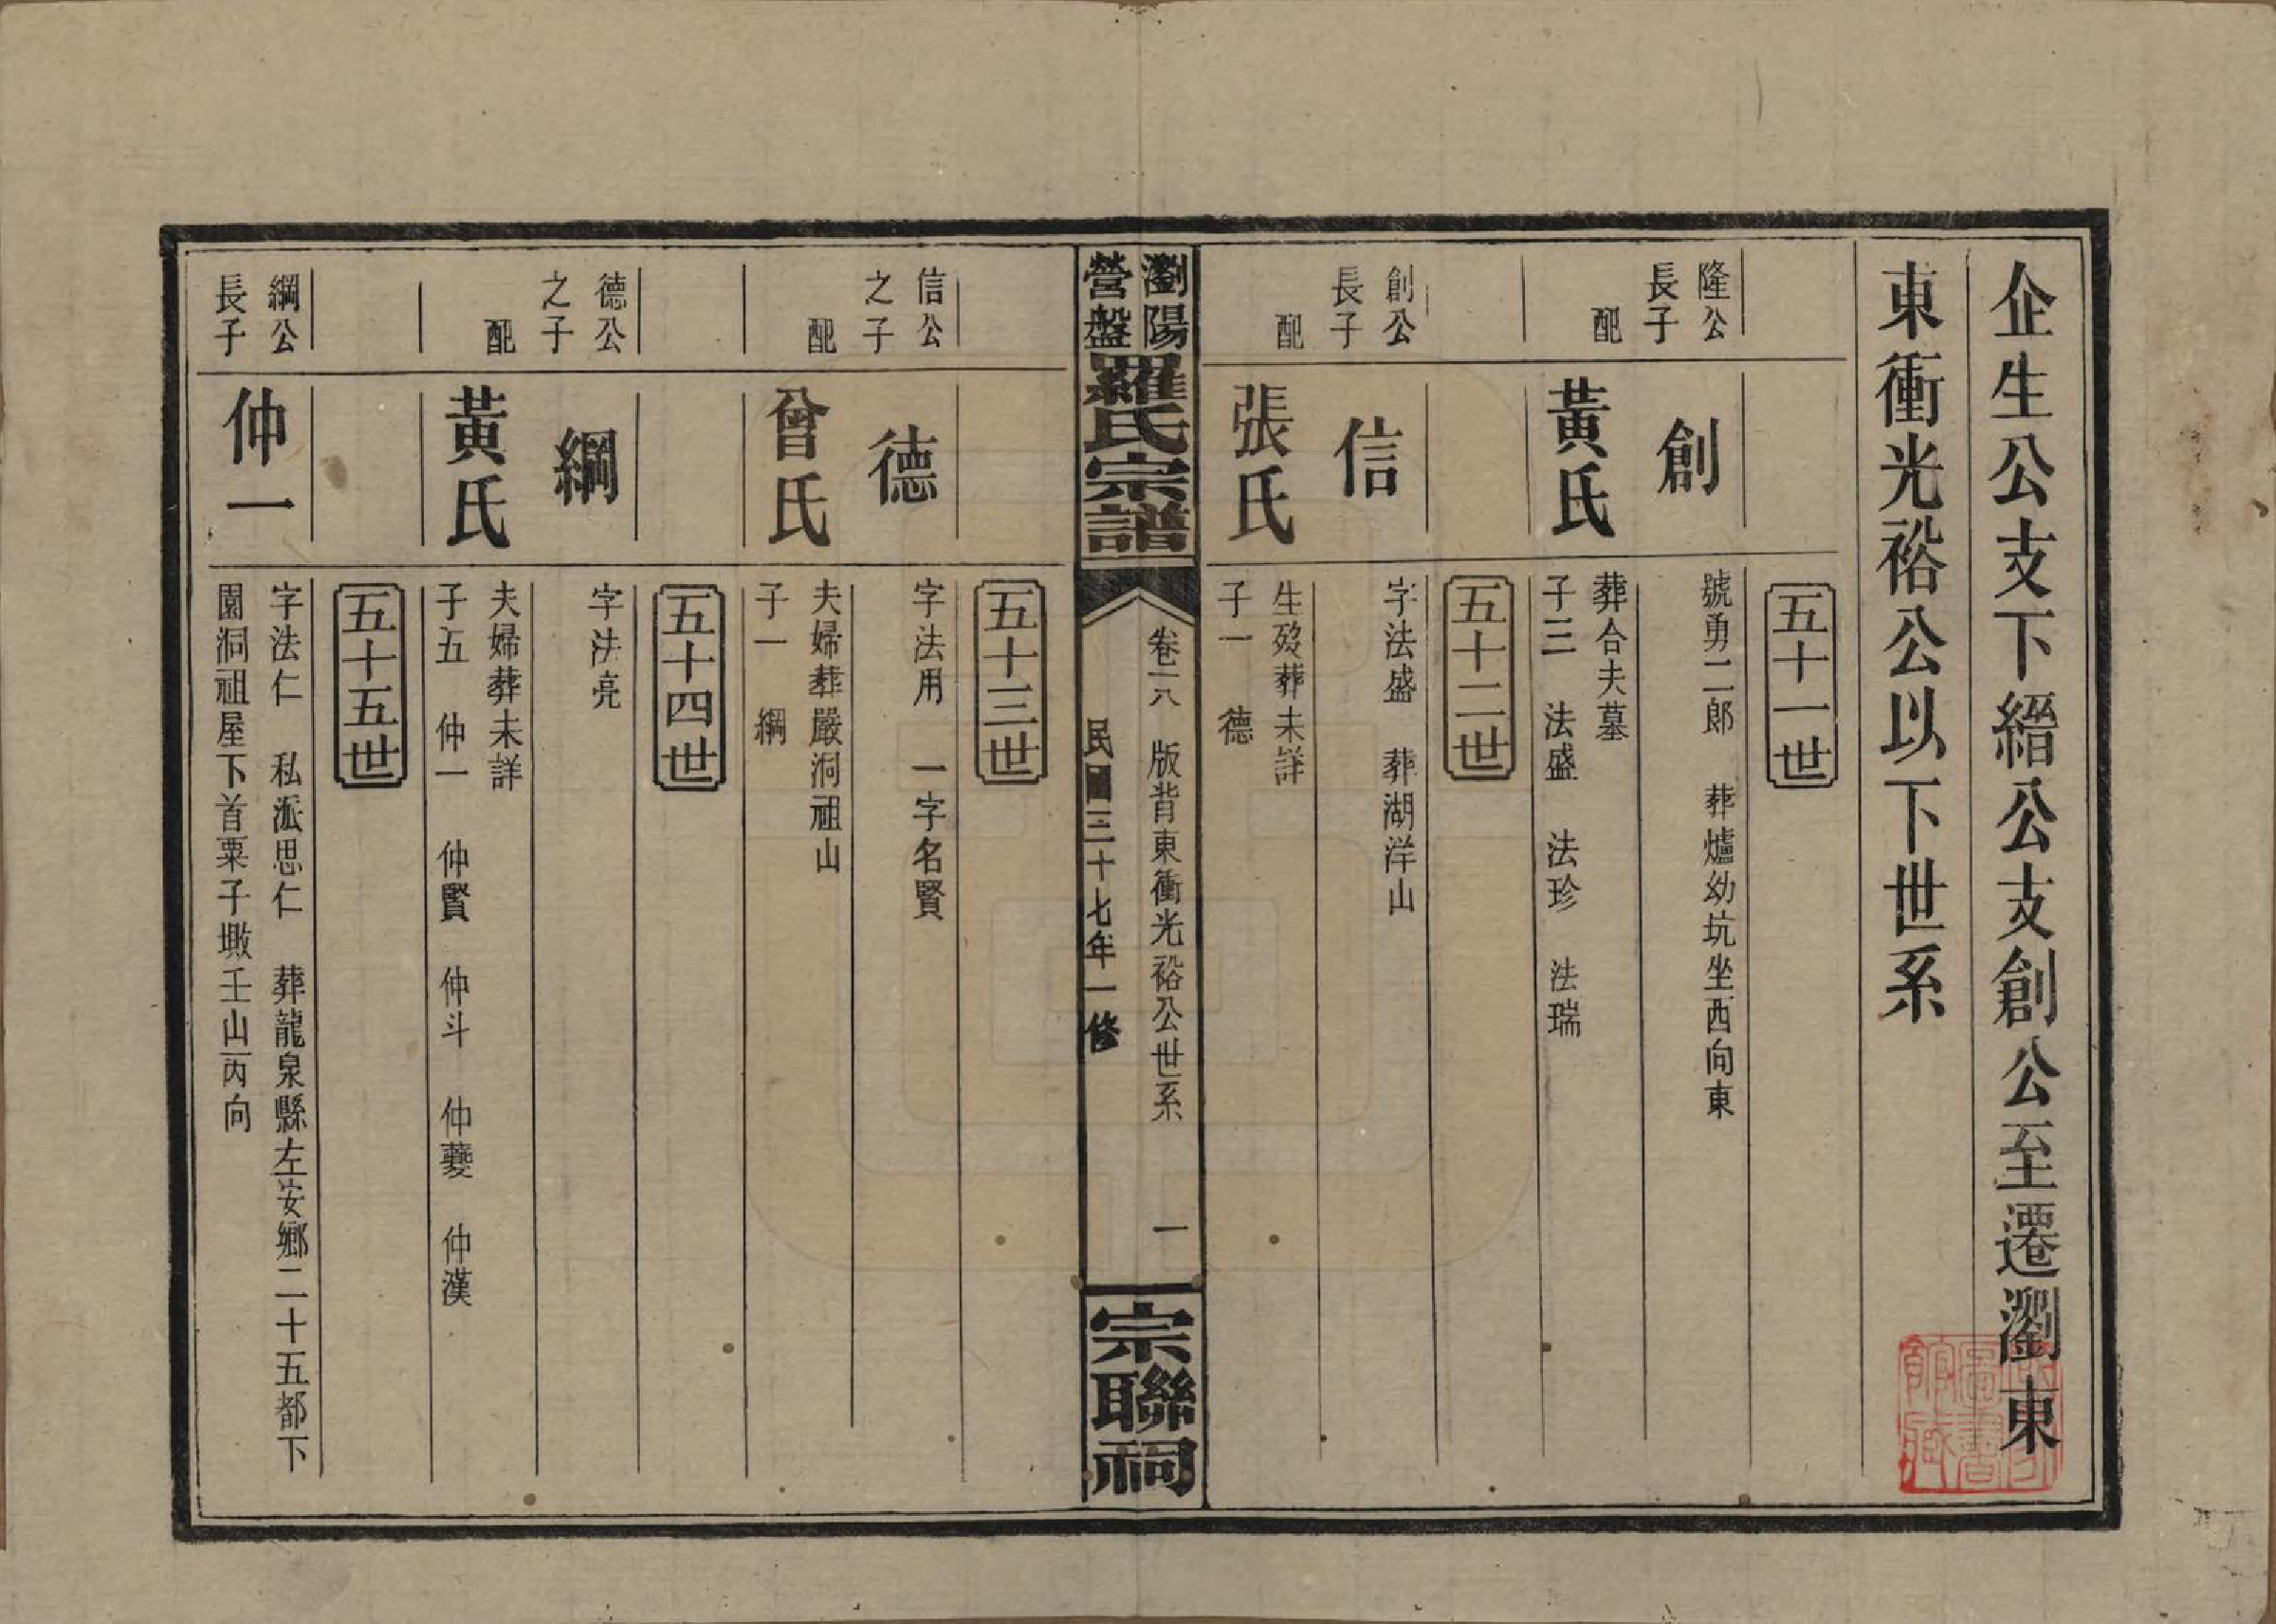 企生公支下縉公支創公至遷瀏東
東衝光裕公以下世系
五十一世
隆公
長子
創
號勇二郎　葬爐幼坑坐西向東
配
黃氏
葬合夫墓
子三　法盛　法珍　法瑞
五十二世
創公
長子
信
字法盛　葬湖洋山
配
張氏
生歿葬未詳
子一　德
瀏陽
營盤
羅氏宗譜
卷六　版背東衝光裕公世系　一
民國三十七年一修
宗聯祠
五十三世
信公
之子
德
字法用　一字名賢
配
曾氏
夫婦葬嚴洞祖山
子一　綱
五十四世
德公
之子
綱
字法亮
配
黃氏
夫婦葬未詳
子五　仲一　仲賢　仲斗　仲夔　仲漢
五十五世
綱公
長子
仲一
字法仁　私派思仁　葬龍泉縣左安鄉二十五都下
園洞祖屋下首粟子墩壬山丙向